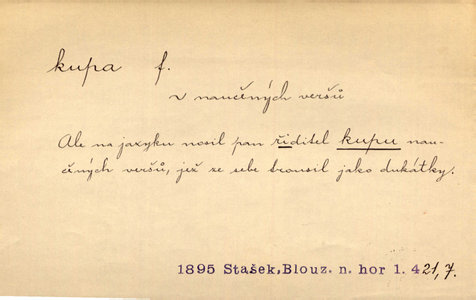 kupa f.
v naučených veršů
Ale na jazyku nosil pan řiditel kupu nau-
čených veršů, jež ze sebe trousil jako dukátky.
1895 Stašek, Blouz. n. hor 1. 421,7.